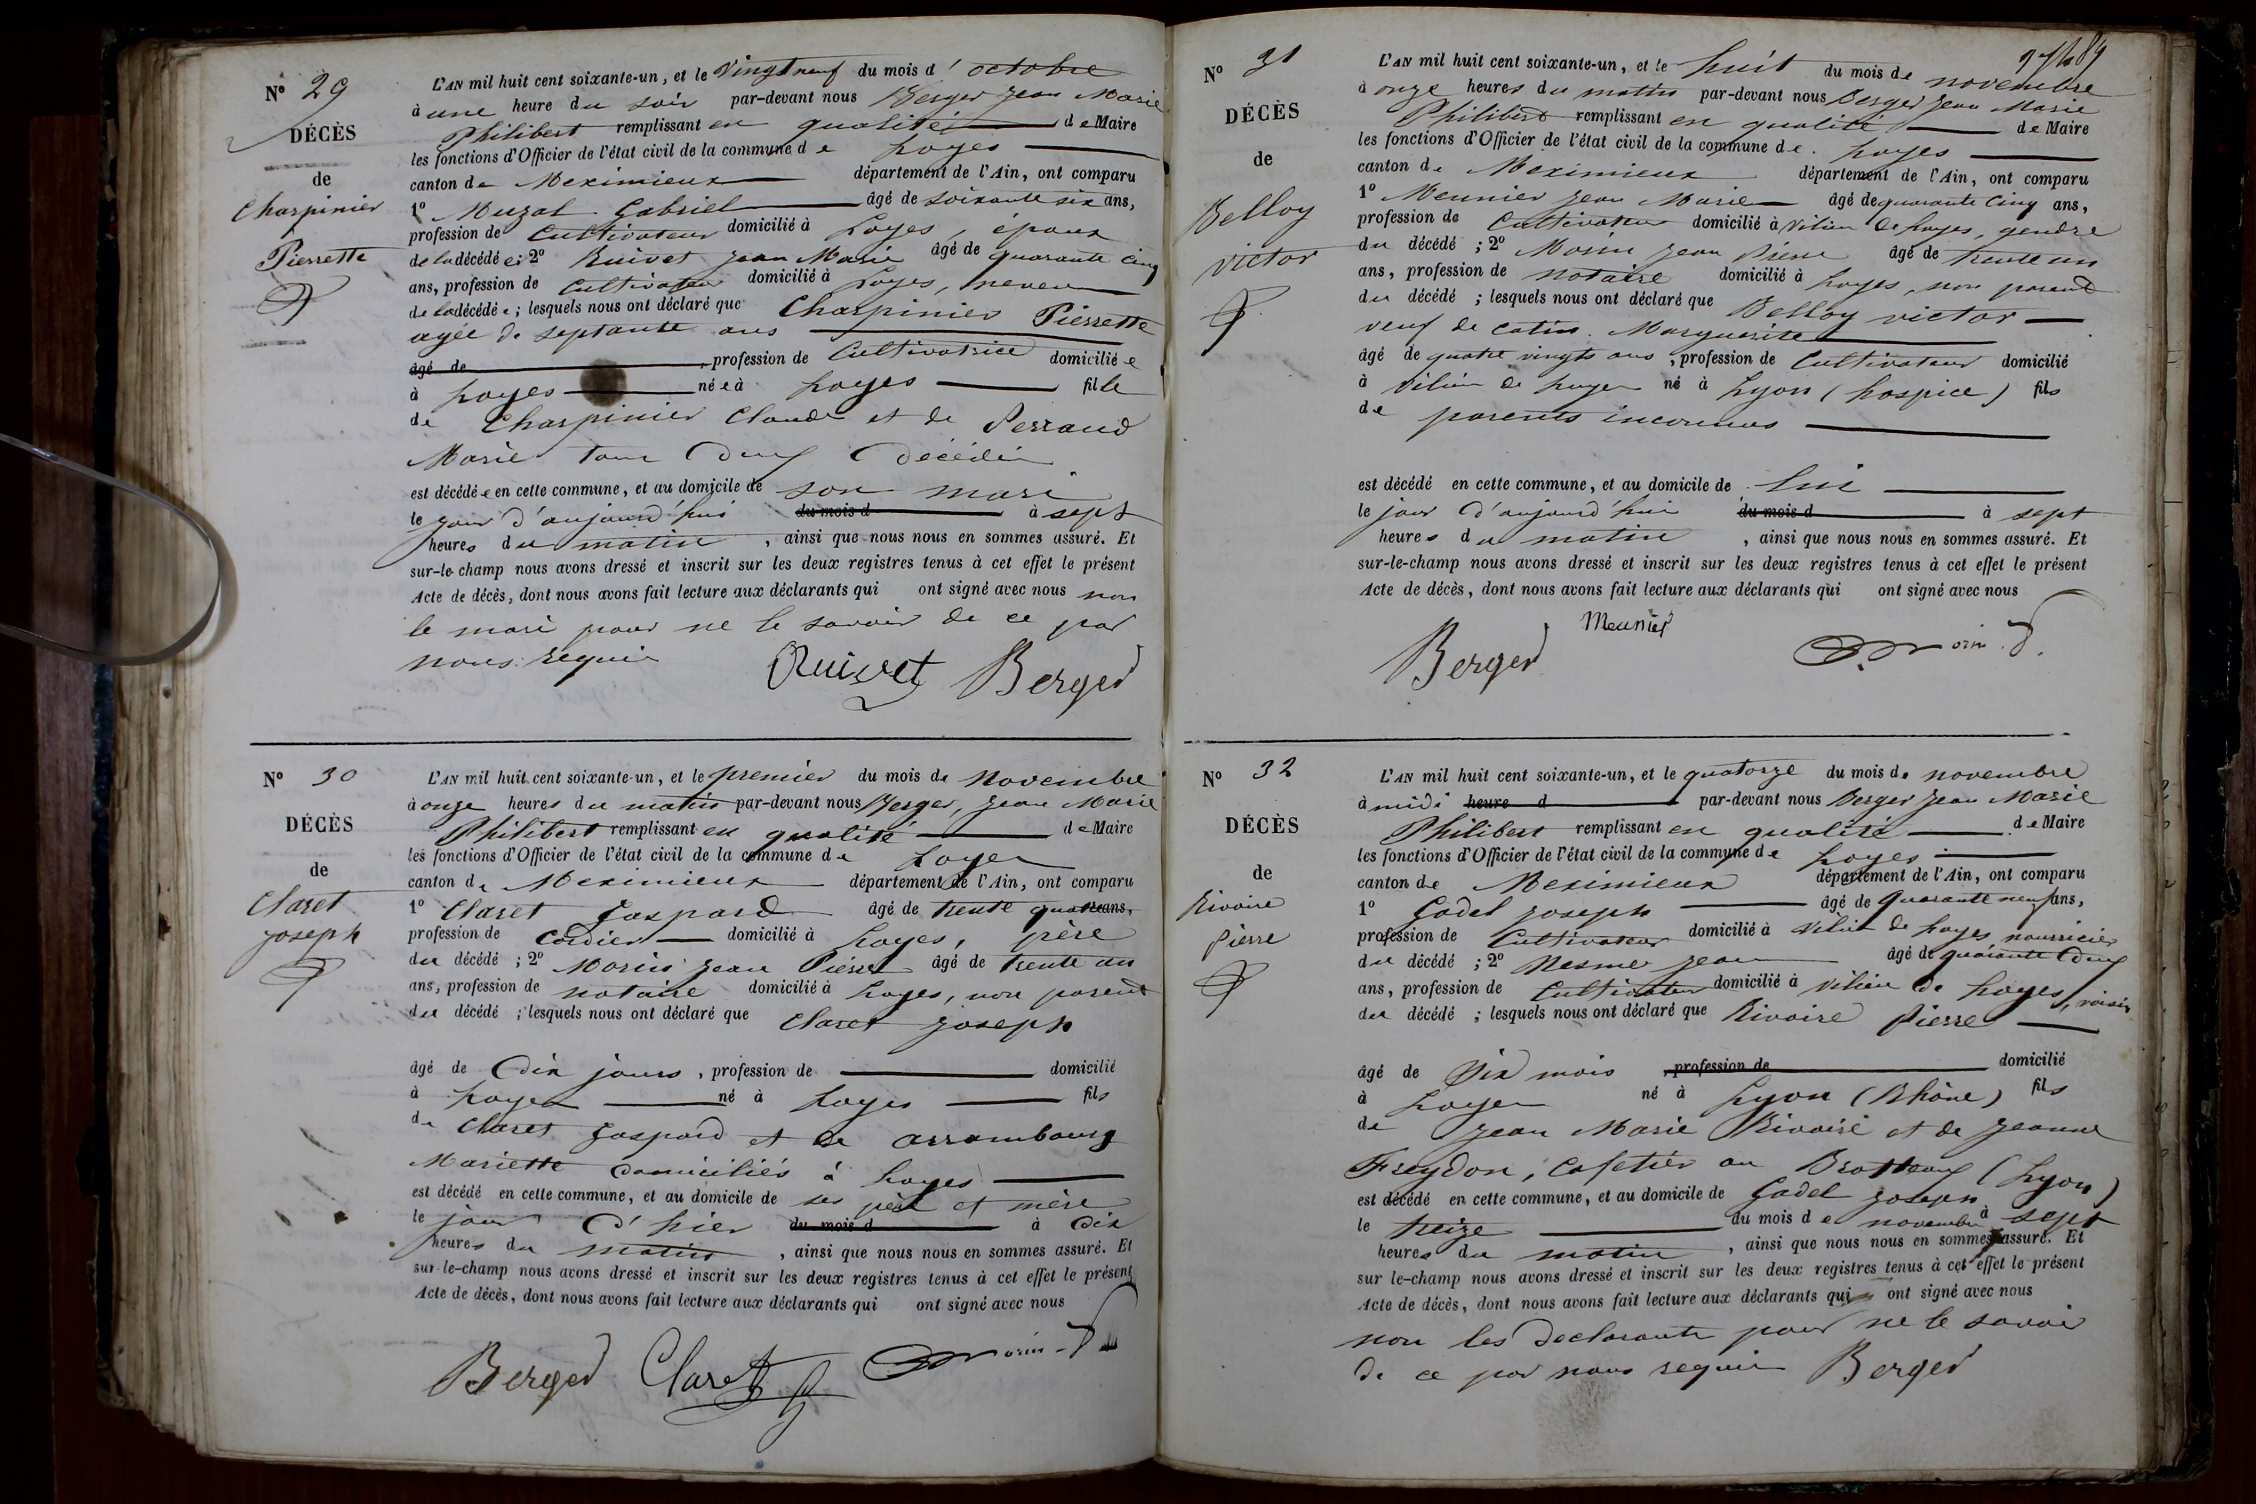 N° 29
DÉCÈS
de
Charpinier
Pierrette
L'AN mil huit cent soixante-un, et le vingt neuf du mois d'octobre
à une heure du soir par-devant nous Berger Jean Marie
Philibert remplissant en qualité de Maire
les fonctions d'Officier de l'état civil de la commune de Loyes
canton de Meximieux département de l'Ain, ont comparu
1° Muzat Gabriel âgé de soixante six ans,
profession de Cultivateur domicilié à Loyes, époux
de la décédée; 2° Ruivet Jean Marie âgé de quarante cinq
ans, profession de Cultivateur domicilié à Loyes, neveu
de la décédée; lesquels nous ont déclaré que Charpinier Pierrette
agée de septante ans
âgé de profession de Cultivatrice domiciliée
à Loyes née à Loyes fille
de Charpinier Claude et de Perraud
Marie tous deux décédés
est décédée en cette commune, et au domicile de son mari
le jour d'aujourd'hui du mois d à sept
heures du matin, ainsi que nous nous en sommes assuré. Et
sur-le-champ nous avons dressé et inscrit sur les deux registres tenus à cet effet le présent
Acte de décès, dont nous avons fait lecture aux déclarants qui ont signé avec nous non
le mari pour ne le savoir de ce par
nous requis Ruivet Berger
N° 30
DÉCÈS
de
Claret
Joseph
L'AN mil huit cent soixante-un, et le premier du mois de Novembre
à onze heures du matin par-devant nous Berger, Jean Marie
Philibert remplissant en qualité de Maire
les fonctions d'Officier de l'état civil de la commune de Loyes
canton de Meximieux département de l'Ain, ont comparu
1° Claret Gaspard âgé de trente quatre ans,
profession de Cordier domicilié à Loyes, père
du décédé; 2° Morin Jean Pierre âgé de trente un
ans, profession de notaire domicilié à Loyes, non parent
du décédé; lesquels nous ont déclaré que Claret Joseph
âgé de Dix jours, profession de domicilié
à Loyes né à Loyes fils
de Claret Gaspard et de Arrambourg
Mariette domiciliés à Loyes
est décédé en cette commune, et au domicile de ses père et mère
le jour d'hier du mois d à Dix
heures du matin, ainsi que nous nous en sommes assuré. Et
sur-le-champ nous avons dressé et inscrit sur les deux registres tenus à cet effet le présent
Acte de décès, dont nous avons fait lecture aux déclarants qui ont signé avec nous
Berger Claret Morin
N° 31
DÉCÈS
de
Belloy
victor
L'AN mil huit cent soixante-un, et le huit du mois de novembre
à onze heures du matin par-devant nous Berger Jean Marie
Philibert remplissant en qualité de Maire
les fonctions d'Officier de l'état civil de la commune de Loyes
canton de Meximieux département de l'Ain, ont comparu
1° Meunier Jean Marie âgé de quarante cinq ans,
profession de Cultivateur domicilié à Vilieu de Loyes, gendre
du décédé; 2° Morin Jean Pierre âgé de trente un
ans, profession de notaire domicilié à Loyes, non parent
du décédé; lesquels nous ont déclaré que Belloy victor
veuf de Catin Marguerite
âgé de quatre vingts ans, profession de Cultivateur domicilié
à Vilieu de Loyes né à Lyon (hospice) fils
de parents inconnus
est décédé en cette commune, et au domicile de lui
le jour d'aujourd'hui du mois d à sept
heures du matin, ainsi que nous nous en sommes assuré. Et
sur-le-champ nous avons dressé et inscrit sur les deux registres tenus à cet effet le présent
Acte de décès, dont nous avons fait lecture aux déclarants qui ont signé avec nous
Berger Meunier Morin
N° 32
DÉCÈS
de
Rivoire
Pierre
L'AN mil huit cent soixante-un, et le quatorze du mois de novembre
à midi heure d par-devant nous Berger Jean Marie
Philibert remplissant en qualité de Maire
les fonctions d'Officier de l'état civil de la commune de Loyes
canton de Meximieux département de l'Ain, ont comparu
1° Godet Joseph âgé de quarante neuf ans,
profession de Cultivateur domicilié à Vilieu de Loyes nourricier
du décédé; 2° Nesme Jean âgé de quarante deux
ans, profession de Cultivateur domicilié à Vilieu de Loyes, voisin
du décédé; lesquels nous ont déclaré que Rivoire Pierre
âgé de Six mois, profession de domicilié
à Loyes né à Lyon (Rhône) fils
de Jean Marie Rivoire et de Jeanne
Freydon, Cafetier au Brotteaux (Lyon)
est décédé en cette commune, et au domicile de Godet Joseph
le treize du mois de novembre à sept
heures du matin, ainsi que nous nous en sommes assuré. Et
sur le-champ nous avons dressé et inscrit sur les deux registres tenus à cet effet le présent
Acte de décès, dont nous avons fait lecture aux déclarants qui ont signé avec nous
non les declarants pour ne le savoir
de ce par nous requis Berger